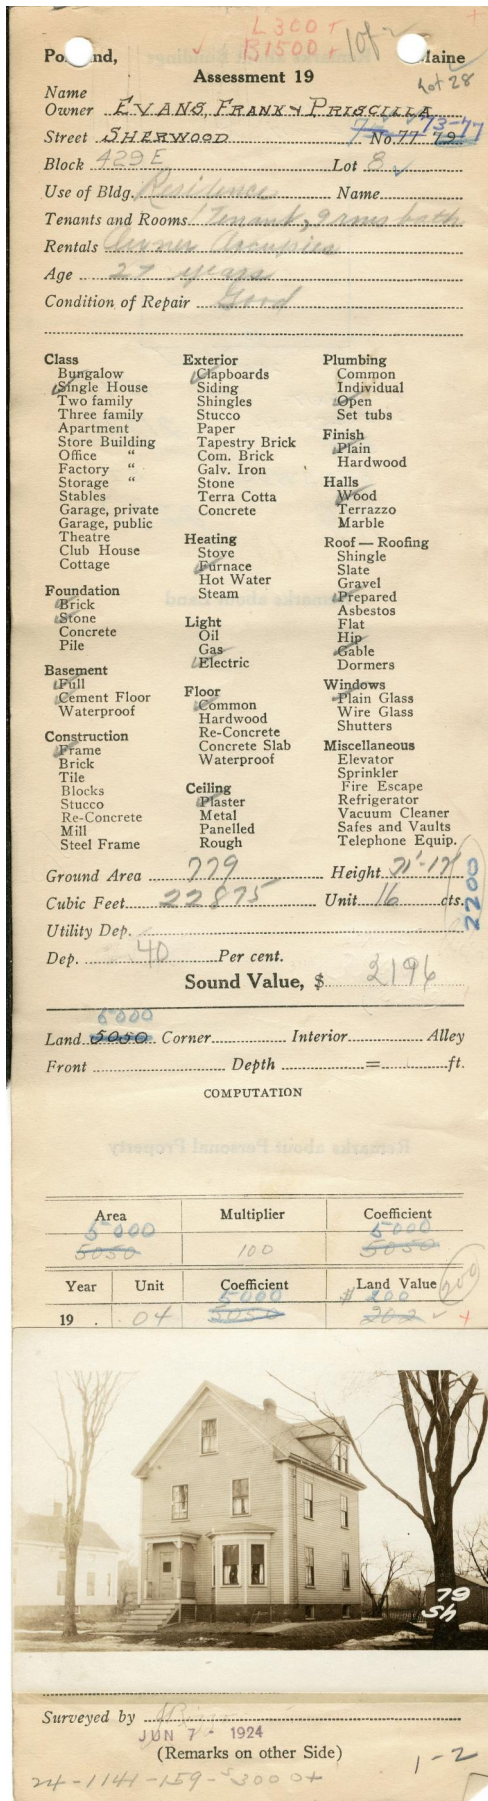 L 300 +
B 1500 +
1 of 2
Portland, Maine
Assessment 19
Lot 28
Name
Owner EVANS, FRANK & PRISCILLA
73-77
Street SHERWOOD No. 77-79
Block 429 E Lot 8
Use of Bldg. Residence Name
Tenants and Rooms 1 Tenant, 9 rms bath
Rentals Owner Occupies
Age 27 years
Condition of Repair Good
Class
Bungalow
Single House
Two family
Three family
Apartment
Store Building
Office "
Factory "
Storage "
Stables
Garage, private
Garage, public
Theatre
Club House
Cottage
Foundation
Brick
Stone
Concrete
Pile
Basement
Full
Cement Floor
Waterproof
Construction
Frame
Brick
Tile
Blocks
Stucco
Re-Concrete
Mill
Steel Frame
Exterior
Clapboards
Siding
Shingles
Stucco
Paper
Tapestry Brick
Com. Brick
Galv. Iron
Stone
Terra Cotta
Concrete
Heating
Stove
Furnace
Hot Water
Steam
Light
Oil
Gas
Electric
Floor
Common
Hardwood
Re-Concrete
Concrete Slab
Waterproof
Ceiling
Plaster
Metal
Panelled
Rough
Plumbing
Common
Individual
Open
Set tubs
Finish
Plain
Hardwood
Halls
Wood
Terrazzo
Marble
Roof—Roofing
Shingle
Slate
Gravel
Prepared
Asbestos
Flat
Hip
Gable
Dormers
Windows
Plain Glass
Wire Glass
Shutters
Miscellaneous
Elevator
Sprinkler
Fire Escape
Refrigerator
Vacuum Cleaner
Safes and Vaults
Telephone Equip.
Ground Area 779 Height
Cubic Feet 22875 Unit 16 cts.
2200
Utility Dep.
Dep. 40 Per cent.
Sound Value, $ 2196
5000
Land 5050 Corner Interior Alley
Front Depth = ft.
COMPUTATION
Area Multiplier Coefficient
5000 5000
5050 100 5050
Year Unit Coefficient Land Value
200
5000 $ 200
19 . 04 5050 202
79
Sh
Surveyed by
JUN 7 - 1924
(Remarks on other Side)
1-2
24-1141-159-$3000+